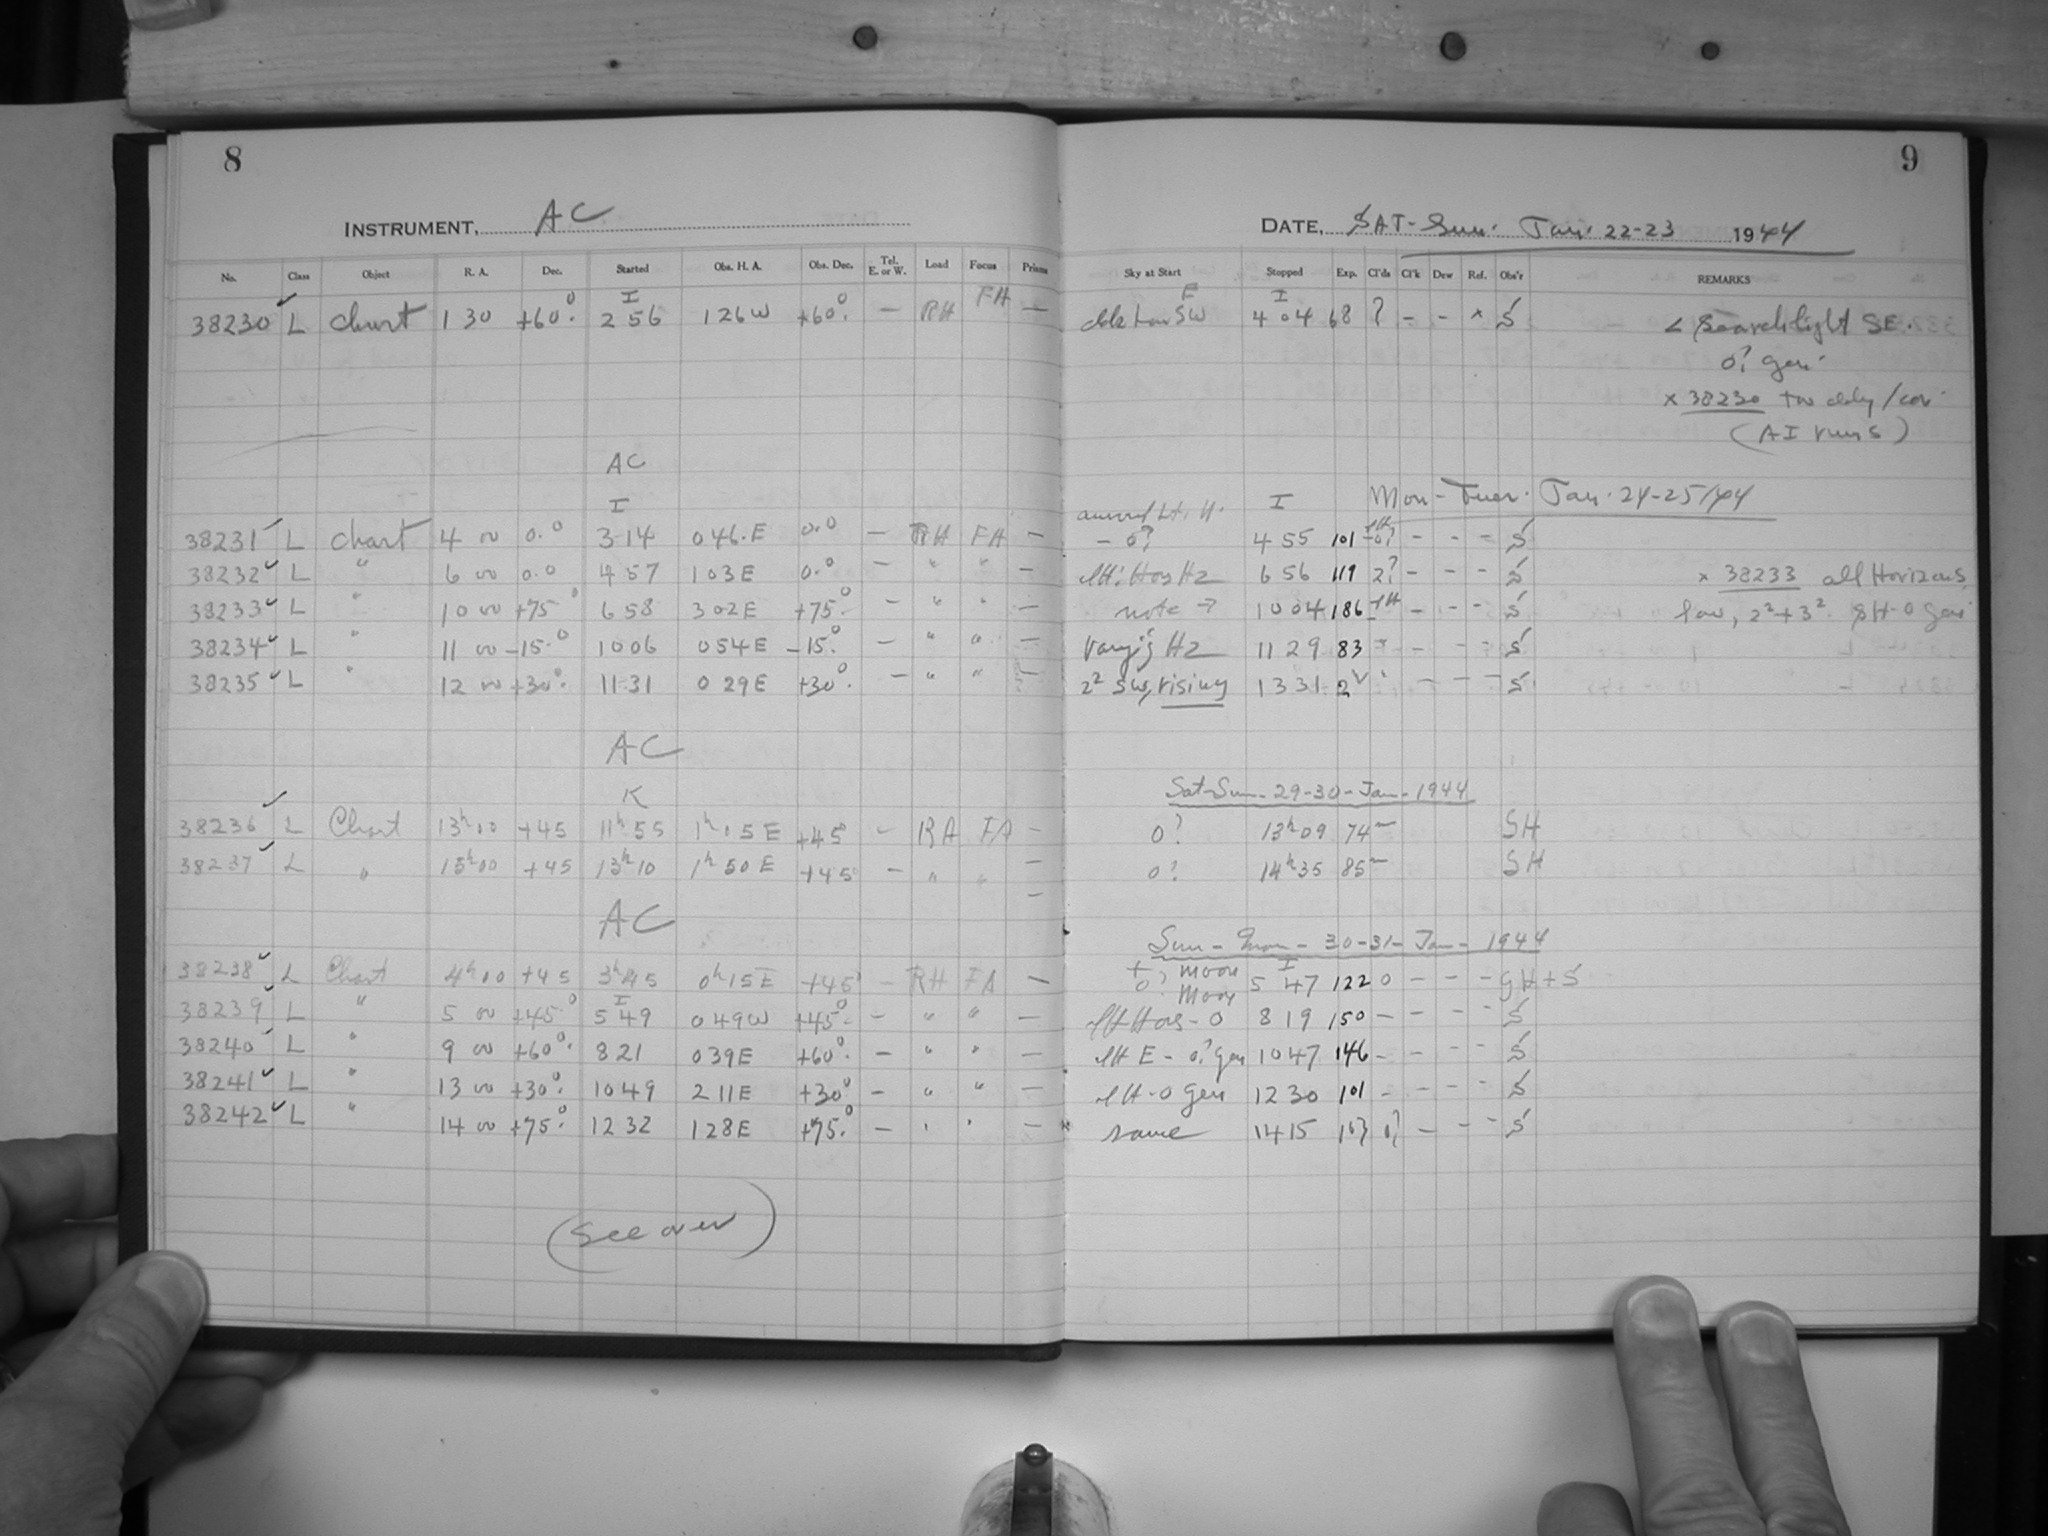 8
INSTRUMENT, AC
No. Class Object R. A. Dec. Started Obs. H. A. Obs. Dec. Tel. E. or W. Load Focus Prisms
I
38230 ✓ L Chart 1 30 +60°. 2 56 1 26 W +60°. — RH FA —
AC
I
38231 ✓ L Chart 4 00 0.0 3 14 0 46.E 0.0 — RH FA —
38232 ✓ L " 6 00 0.0 4 57 1 03 E 0.0 — " " —
38233 ✓ L " 10 00 +75° 6 58 3 02 E +75°. — " " —
38234 ✓ L " 11 00 –15.° 10 06 0 54 E –15.° — " " —
38235 ✓ L " 12 00 +30°. 11 31 0 29 E +30°. — " " —
AC
K
38236 ✓ L Chart 13ʰ00 +45 11ʰ55 1ʰ05 E +45° — RA FA —
38237 ✓ L " 15ʰ00 +45 13ʰ10 1ʰ50 E +45° — " " —
—
AC
38238 ✓ L Chart 4ʰ00 +45 3ʰ45 0ʰ15 E +45° — RH FA —
I
38239 ✓ L " 5 00 +45° 5 49 0 49 W +45° — " " —
38240 ✓ L " 9 00 +60°. 8 21 0 39 E +60°. — " " —
38241 ✓ L " 13 00 +30°. 10 49 2 11 E +30° — " " —
38242 ✓ L " 14 00 +75.° 12 32 1 28 E +75.° — " " —
(See over)
9
DATE, SAT-Sun. Jan. 22-23 1944
Sky at Start Stopped Exp. Cl'ds Cl'k Dew Ref. Obs'r REMARKS
E I
low SW 4 04 68 ? – – x S < Searchlight SE.
0? gen.
x 38230
(AI runs)
I Mon-Tues. Jan. 24-25/44
– 0? 4 55 101 – – – S
Hz 6 56 119 2? – – – S x 38233 all Horizons
note → 10 04 186 – – – S low, 2²+3². gen.
Vary'g Hz 11 29 83 – – – S
2² SW, rising 13 31 2 – – – S
Sat-Sun-29-30-Jan-1944
0? 13ʰ09 74 — SH
0? 14ʰ35 85 — SH
Sun-Mon-30-31-Jan-1944
Moon I
0? 5 47 122 0 – – – + S
Moon
– 0 8 19 150 – – – – S
E – 0? gen 10 47 146 – – – – S
– 0 gen 12 30 101 – – – – S
same 14 15 103 0? – – – S